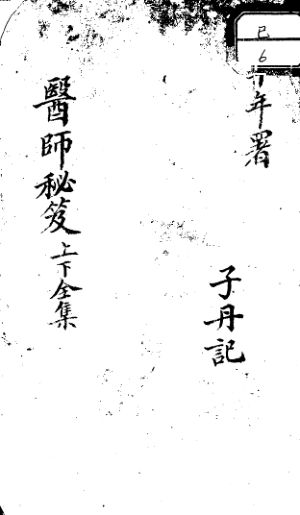 己
6
年署
子丹記
醫師秘笈上下全集